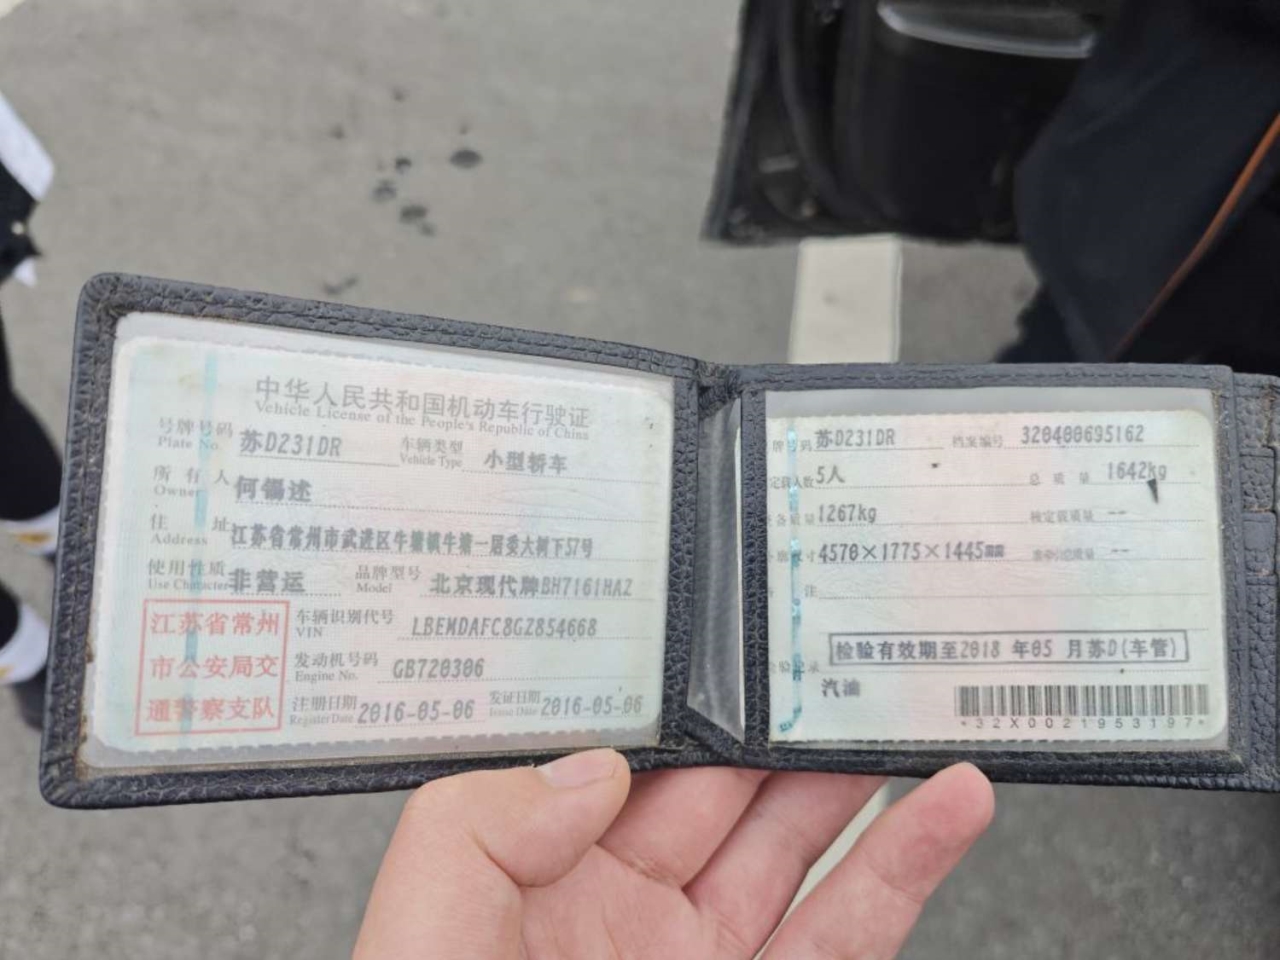 中华人民共和国机动车行驶证
Vehicle License of the People's Republic of China
号牌号码 苏D231DR 车辆类型 小型轿车
Plate No. Vehicle Type
所有人 何锡述
Owner
住址 江苏省常州市武进区牛塘镇牛塘一居委大树下57号
Address
使用性质 非营运 品牌型号 北京现代牌BH7161HAZ
Use Character Model
江苏省常州
市公安局交
通警察支队
车辆识别代号 LBEMDAFC8GZ854668
VIN
发动机号码 GB720306
Engine No.
注册日期 2016-05-06 发证日期 2016-05-06
Register Date Issue Date
牌号码 苏D231DR 档案编号 320400695162
定载人数 5人 总质量 1642kg
备质量 1267kg 核定载质量 --
廓尺寸 4570×1775×1445mm --
注
检验有效期至2018 年05 月苏D(车管)
检验记录
汽油
*32X0021953197*